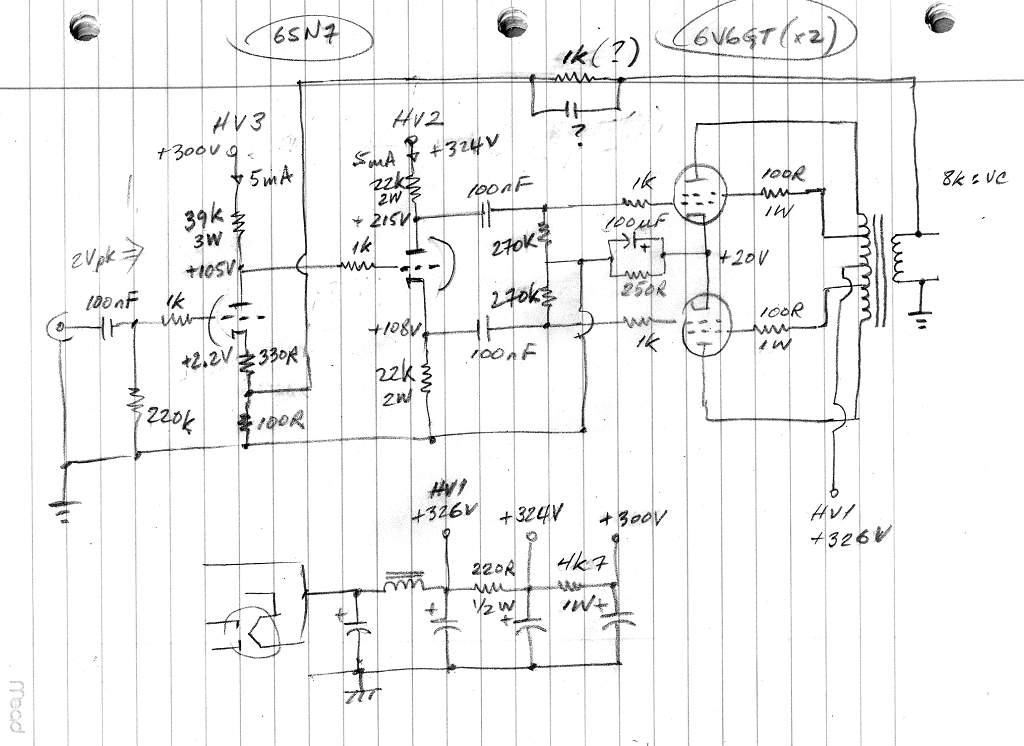 6SN7
6V6GT (x2)
1k (?)
?
HV3
+300V
5mA
39k
3W
+105V
2Vpk ⇒
100nF
1k
+2.2V
330R
220k
100R
HV2
+324V
5mA
22k
2W
+215V
1k
+108V
22k
2W
100nF
100nF
270k
270k
1k
100µF
+
250R
1k
+20V
100R
1W
100R
1W
8k : VC
HV1
+326V
HV1
+326V
+324V
+300V
220R
1/2W
4k7
1W
+
+
+
+
mead